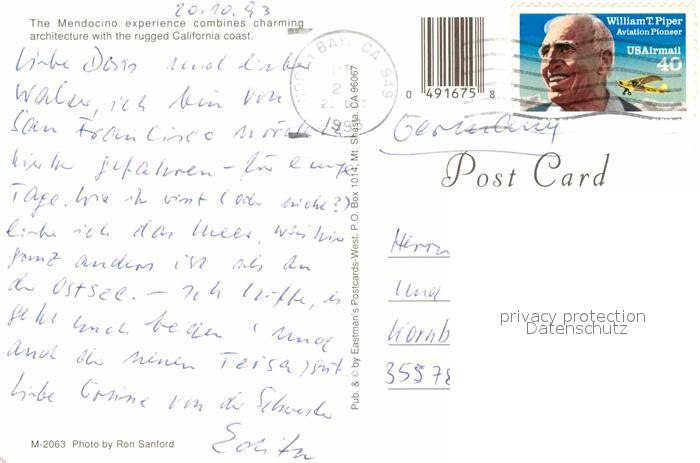 20.10.93
The Mendocino experience combines charming
architecture with the rugged California coast.
Liebe Doris und lieber
ich bin von
San Francisco nördl.
gefahren – für einige
Tage. Wie ihr wisst (oder nicht?)
liebe ich das Meer,
ganz anders ist als an
der Ostsee. – Ich hoffe, es
geht Euch beiden und
auch die neuen
Liebe Grüsse von der Schwester
M-2063 Photo by Ron Sanford
Pub. & © by Eastman's Postcards-West, P.O. Box 1014, Mt. Shasta, CA 96067
NORTH BAY, CA 949
PM
0 491675 8
William T. Piper
Aviation Pioneer
USAirmail
40
Germany
Post Card
Herrn
und
Kornb
35578
privacy protection
Datenschutz